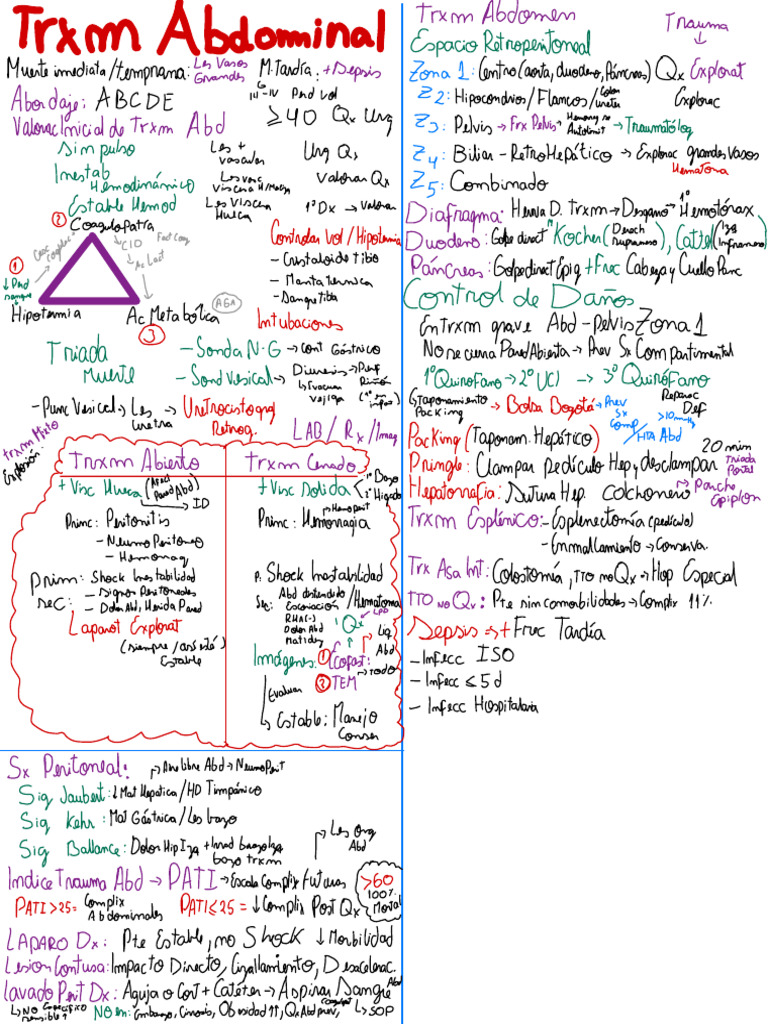 Trxm Abdominal
Muerte inmediata/temprana: Les Vasos Grandes
M. Tardía: + Sepsis
Abordaje: ABCDE
III-IV Perd vol
≥40 Qx Urg
Valorac Inicial de Trxm Abd
Sin pulso
Les + vasculares
Urg Qx
Inestab Hemodinámico
Les vasc
valorar Qx
Estable Hemod
Les Viscera Hueca
1º Dx → valorar
② Coagulopatía
CID
Ac Lact
①
↓ Perd sangre
Hipotermia
Ac Metabólica
③
Controlar vol / Hipotermia
- Cristaloide tibio
- Manta termica
- Sangre tibia
Intubaciones
Triada Muerte
- Sonda N-G → Cont Gástrico
- Sond Vesical → Diuresis → Perf Riñón
↳ Evacuar vejiga
- Punc Vesical → Les uretra
Uretrocistograf Retrog.
LAB / Rx / Imag
trxm Mixto Explosión
Trxm Abierto
+ Visc Hueca (Pared Abd)
ID
Princ: Peritonitis
- Neumo Peritoneo
- Hemorrag
Prim: Shock Inestabilidad
Sec: - Signos Peritoneales
- Dolor Abd, Herida Pared
Laparot Explorat
Estable
Trxm Cerrado
+ Visc Solida
1º Bazo
2º Higado
Princ: Hemorragia
Hemoperit
P: Shock Inestabilidad
Sec: Abd distendido / Hematoma
Escoriación
RHA(-)
Dolor Abd
Matidez
Qx
Imágenes: ① Ecofast: Liq Abd
② TEM → todo
Evaluar
↳ Estable: Manejo Conser
Sx Peritoneal: → Aire libre Abd → NeumoPerit
Sig Jaubert: ↓ Mat Hepatica / HD Timpánico
Sig Kehr: Mat Gástrica / Les bazo
Sig Ballance: Dolor Hip Izq + Irrad brazo Izq
bazo trxm
Les Org Abd
Indice Trauma Abd → PATI → Escala Complix Futuras
>60 100% Mortal
PATI > 25 = Complix Abdominales
PATI ≤ 25 = ↓ Complix Post Qx
LAPARO Dx: Pte Estable, no Shock ↓ Morbilidad
Lesion Contusa: Impacto Directo, Cizallamiento, Desacelerac.
Lavado Perit Dx: Aguja o Cort + Catéter → Aspirar Sangre Abd
↳ No Especifico Sensible ↑
NO en: Embarazo, Cirrosis, Obesidad ↑↑, Qx Abd prev, coagulopat
↳ SOP
Trxm Abdomen
Trauma
↓
Espacio Retroperitoneal
Zona 1: Centro (aorta, duodeno, Páncreas) Qx Explorat
Z2: Hipocondrios / Flancos / Colon ureter Explorac
Z3: Pelvis → Frx Pelvis → Hemorrag se Autolimit → Traumatólog
Z4: Biliar - RetroHepático → Explorac grandes Vasos
Hematoma
Z5: Combinado
Diafragma: Hernia D. Trxm → Desgarro → 1º Hemotórax
Duodeno: Golpe direct Kocher (Derech Suprameso), Cattel (Izq Inframeso)
Páncreas: Golpe direct Epig + Frec Cabeza y Cuello Panc
Control de Daños
En trxm grave Abd - pelvis Zona 1
No se cierra Pared Abierta → Prev Sx Compartimental
1º Quirofano → 2º UCI → 3º Quirófano
↳ Taponamiento Packing → Bolsa Bogotá → Prev Sx Comp / HTA Abd
Reparac Def
Packing (Taponam. Hepático)
Pringle: Clampar pedículo Hep y desclampar 20 min
Triada Portal
Hepatorrafia: Sutura Hep. Colchonero → Parche Epiplon
Trxm Esplénico: - Esplenectomía (pedículo)
- Enmallamiento → Conserva.
Trx Asa Int: Colostomía, tto no Qx → Hop Especial
TTO no Qx: Pte sin comorbilidades → Complix 11%
Sepsis ⇒ + Frec Tardía
- Infecc ISO
- Infecc ≤ 5 d
- Infecc Hospitalaria